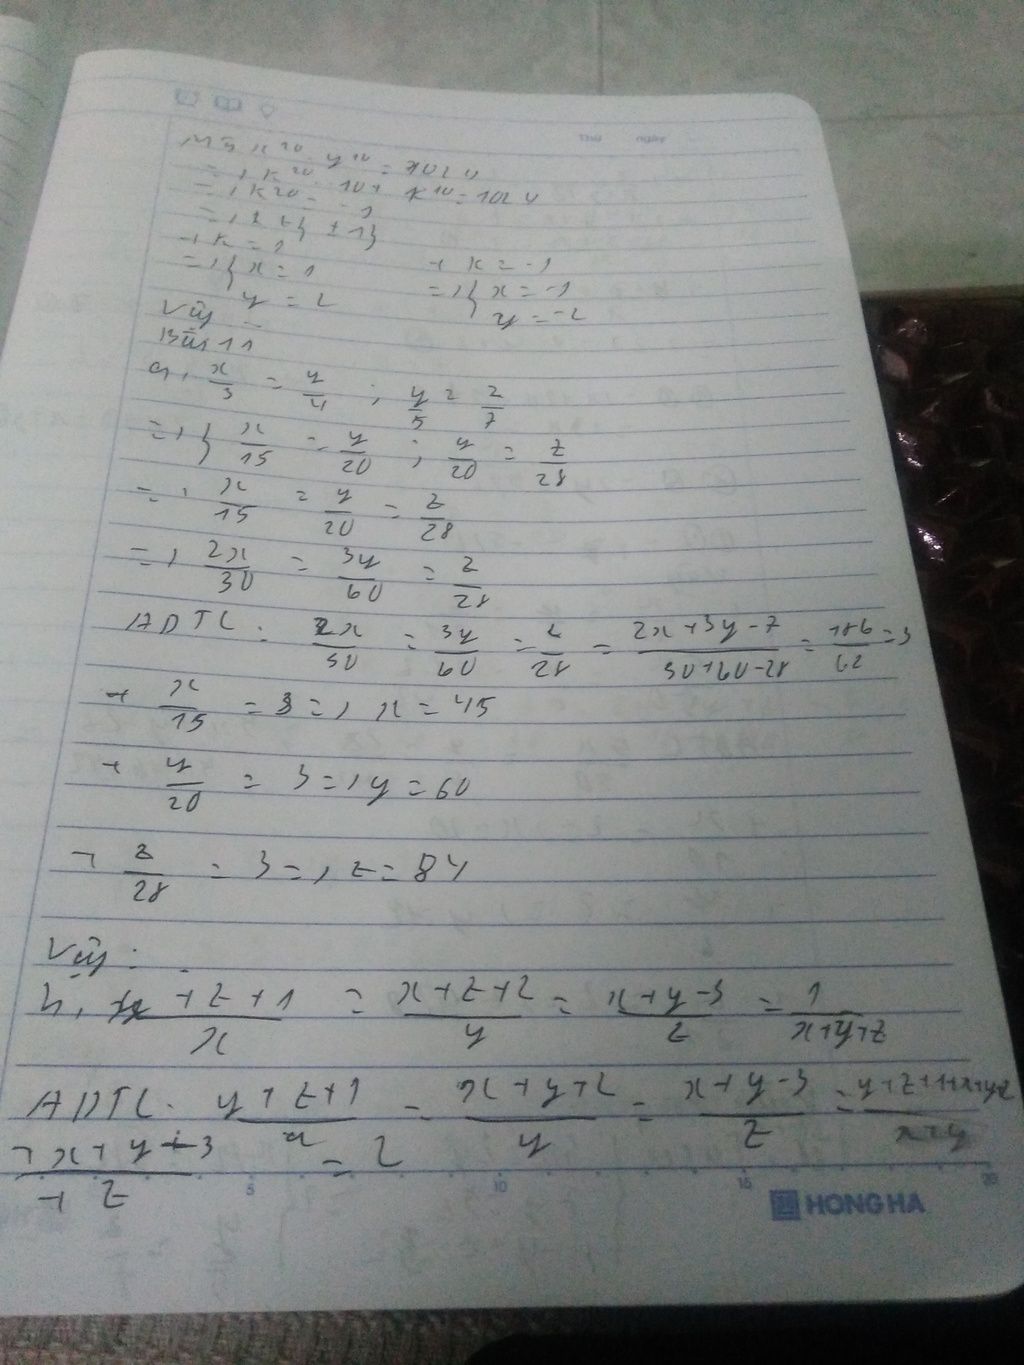 Mà x²⁰ . y¹⁰ = 1024
=> k²⁰ . 10²⁴ k¹⁰ = 1024
=> k²⁰ = 1
=> k ∈ { ±1}
+ k = 1 + k = -1
=> { x = 1 => { x = -1
y = 2 y = -2
Vậy
Bài 11
a, x/3 = y/4 ; y/5 = z/7
=> { x/15 = y/20 ; y/20 = z/28
=> x/15 = y/20 = z/28
=> 2x/30 = 3y/60 = z/28
ADTC : 2x/30 = 3y/60 = z/28 = 2x+3y-z/30+60-28 = 186/62 = 3
+ x/15 = 3 => x = 45
+ y/20 = 3 => y = 60
+ z/28 = 3 => z = 84
Vậy :
b, y+z+1/x = x+z+2/y = x+y-3/z = 1/x+y+z
ADTC. y+z+1/x = x+y+2/y = x+y-3/z = y+z+1+x+y+2/x+y
+x+y-3/+z = 2
HONG HA
5 10 15 20